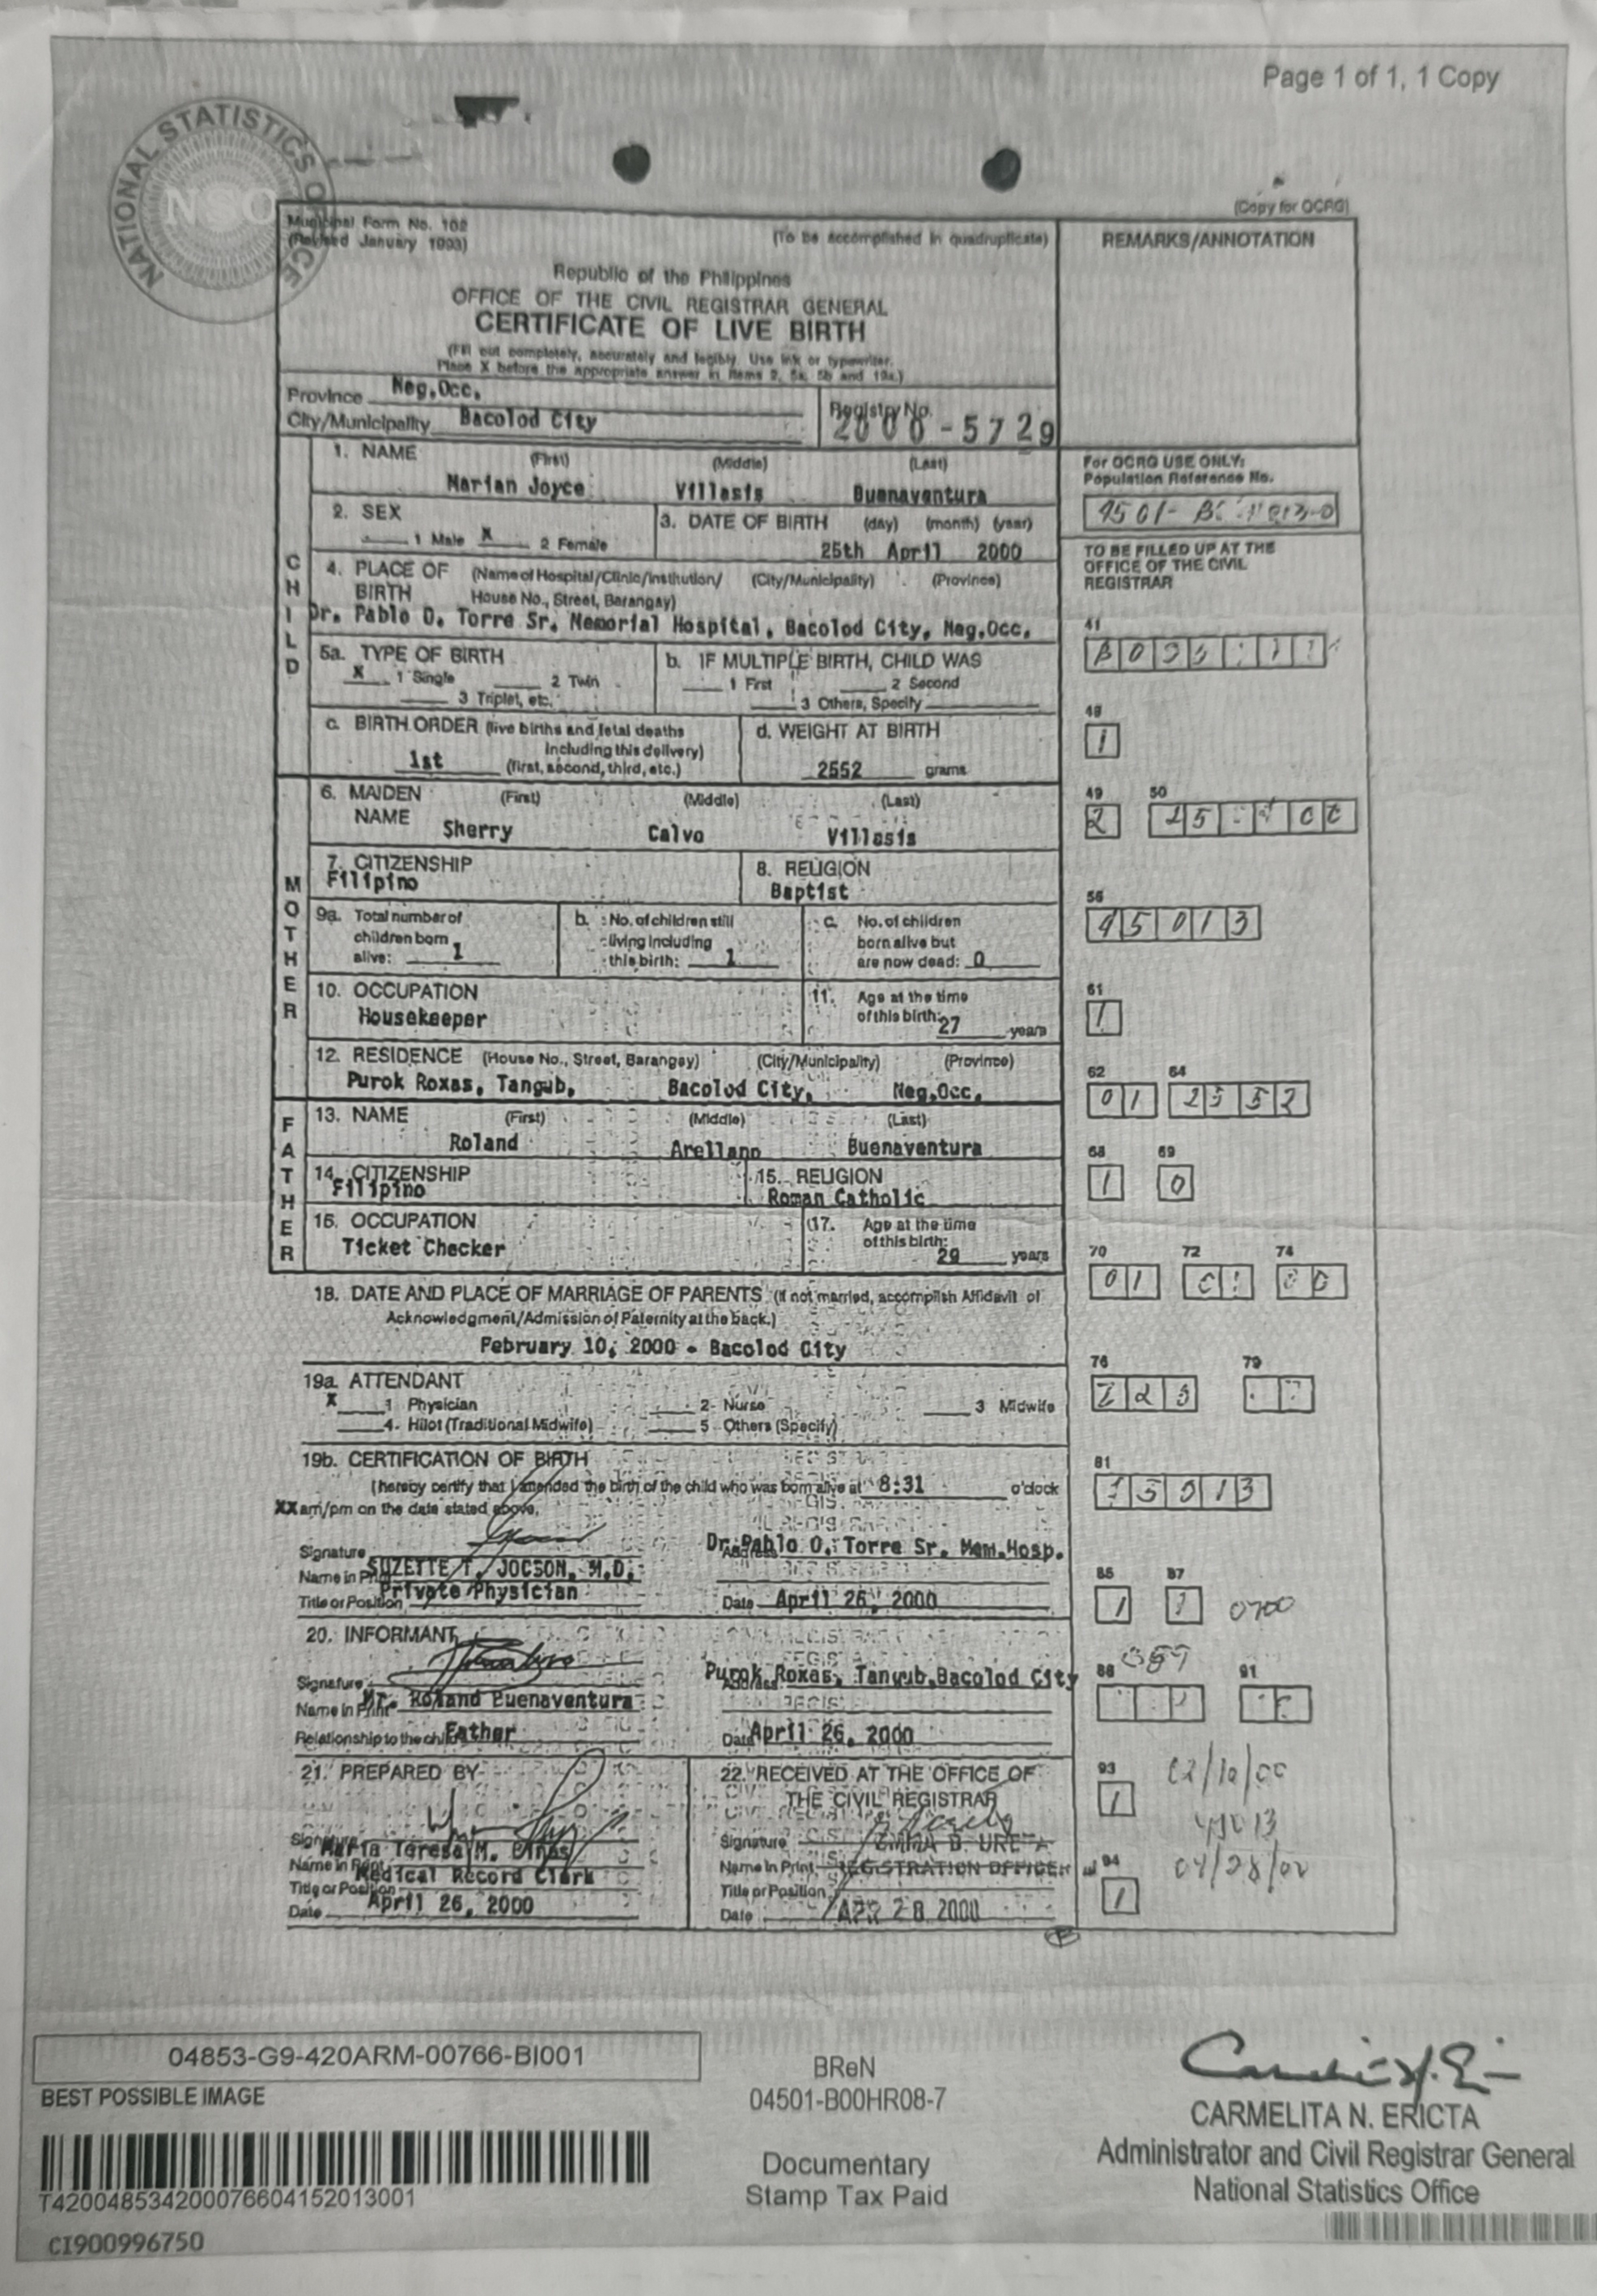 Page 1 of 1, 1 Copy
NATIONAL STATISTICS OFFICE
NSO
(Copy for OCRG)
Municipal Form No. 102
(Revised January 1993)
(To be accomplished in quadruplicate)
REMARKS/ANNOTATION
Republic of the Philippines
OFFICE OF THE CIVIL REGISTRAR GENERAL
CERTIFICATE OF LIVE BIRTH
(Fill out completely, accurately and legibly. Use ink or typewriter.
Place X before the appropriate answer in items 2, 5a, 5b and 19a.)
Province Neg.Occ.
City/Municipality Bacolod City
Registry No. 2000-5729
1. NAME (First) (Middle) (Last)
Marian Joyce Villasis Buenaventura
For OCRG USE ONLY:
Population Reference No.
2. SEX
1 Male X 2 Female
3. DATE OF BIRTH (day) (month) (year)
25th April 2000
TO BE FILLED UP AT THE
OFFICE OF THE CIVIL
REGISTRAR
CHILD
4. PLACE OF BIRTH (Name of Hospital/Clinic/Institution/ (City/Municipality) (Province)
House No., Street, Barangay)
Dr. Pablo O. Torre Sr. Memorial Hospital, Bacolod City, Neg.Occ.
41
5a. TYPE OF BIRTH
X 1 Single 2 Twin
3 Triplet, etc.
b. IF MULTIPLE BIRTH, CHILD WAS
1 First 2 Second
3 Others, Specify
c. BIRTH ORDER (live births and fetal deaths
including this delivery)
1st (first, second, third, etc.)
d. WEIGHT AT BIRTH
2552 grams
48
1
6. MAIDEN NAME (First) (Middle) (Last)
Sherry Calvo Villasis
49 50
2
MOTHER
7. CITIZENSHIP
Filipino
8. RELIGION
Baptist
9a. Total number of
children born
alive: 1
b. No. of children still
living including
this birth: 1
c. No. of children
born alive but
are now dead: 0
56
45013
10. OCCUPATION
Housekeeper
11. Age at the time
of this birth: 27 years
61
1
12. RESIDENCE (House No., Street, Barangay) (City/Municipality) (Province)
Purok Roxas, Tangub, Bacolod City, Neg.Occ.
62 64
01 2552
FATHER
13. NAME (First) (Middle) (Last)
Roland Arellano Buenaventura
68 69
1 0
14. CITIZENSHIP
Filipino
15. RELIGION
Roman Catholic
16. OCCUPATION
Ticket Checker
17. Age at the time
of this birth: 29 years
70 72 74
01
18. DATE AND PLACE OF MARRIAGE OF PARENTS (If not married, accomplish Affidavit of
Acknowledgment/Admission of Paternity at the back.)
February 10, 2000 - Bacolod City
19a. ATTENDANT
X 1 Physician 2 Nurse 3 Midwife
4. Hilot (Traditional Midwife) 5 Others (Specify)
76 79
19b. CERTIFICATION OF BIRTH
I hereby certify that I attended the birth of the child who was born alive at 8:31 o'clock
XX am/pm on the date stated above.
81
Signature
Name in Print SUZETTE T. JOCSON, M.D.
Title or Position Private Physician
Address Dr. Pablo O. Torre Sr. Mem.Hosp.
Date April 26, 2000
85 87
1
0700
20. INFORMANT
Signature
Name in Print Mr. Roland Buenaventura
Relationship to the child Father
Address Purok Roxas, Tangub, Bacolod City
Date April 26, 2000
88 91
21. PREPARED BY
Signature
Name in Print Maria Teresa M.
Title or Position Medical Record Clerk
Date April 26, 2000
22. RECEIVED AT THE OFFICE OF
THE CIVIL REGISTRAR
Signature
Name in Print EMMA B. URETA
Title or Position REGISTRATION OFFICER
Date APR 28 2000
93
1
94
1
04853-G9-420ARM-00766-BI001
BEST POSSIBLE IMAGE
T420048534200076604152013001
CI900996750
BReN
04501-B00HR08-7
Documentary
Stamp Tax Paid
CARMELITA N. ERICTA
Administrator and Civil Registrar General
National Statistics Office